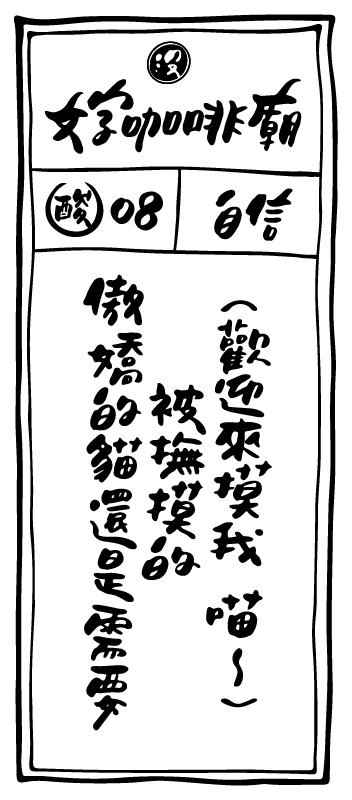 沒
好咖啡廟
酸 08
自信
傲嬌的貓還是需要
被撫摸的
（歡迎來摸我 喵～）